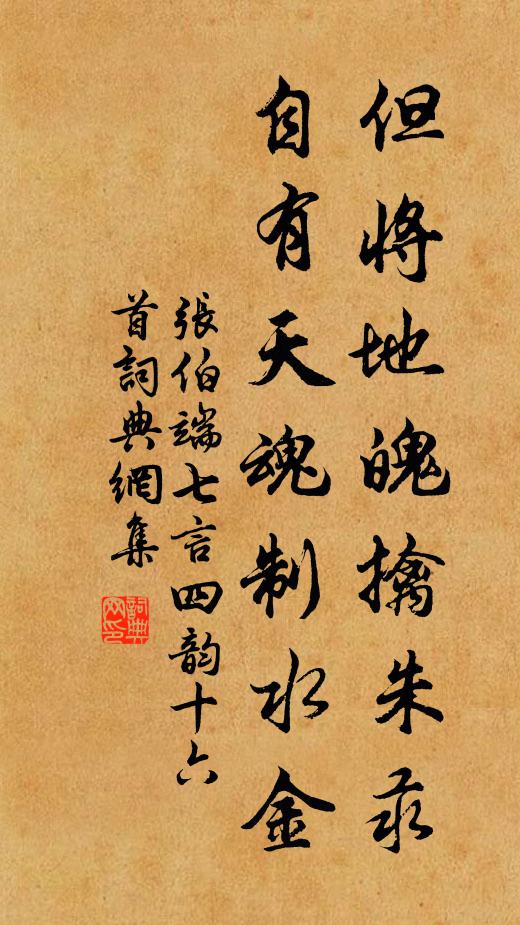 但將地魄擒朱汞
自有天魂制水金
張伯端七言四韵十六
首詞典網集
詞典网印